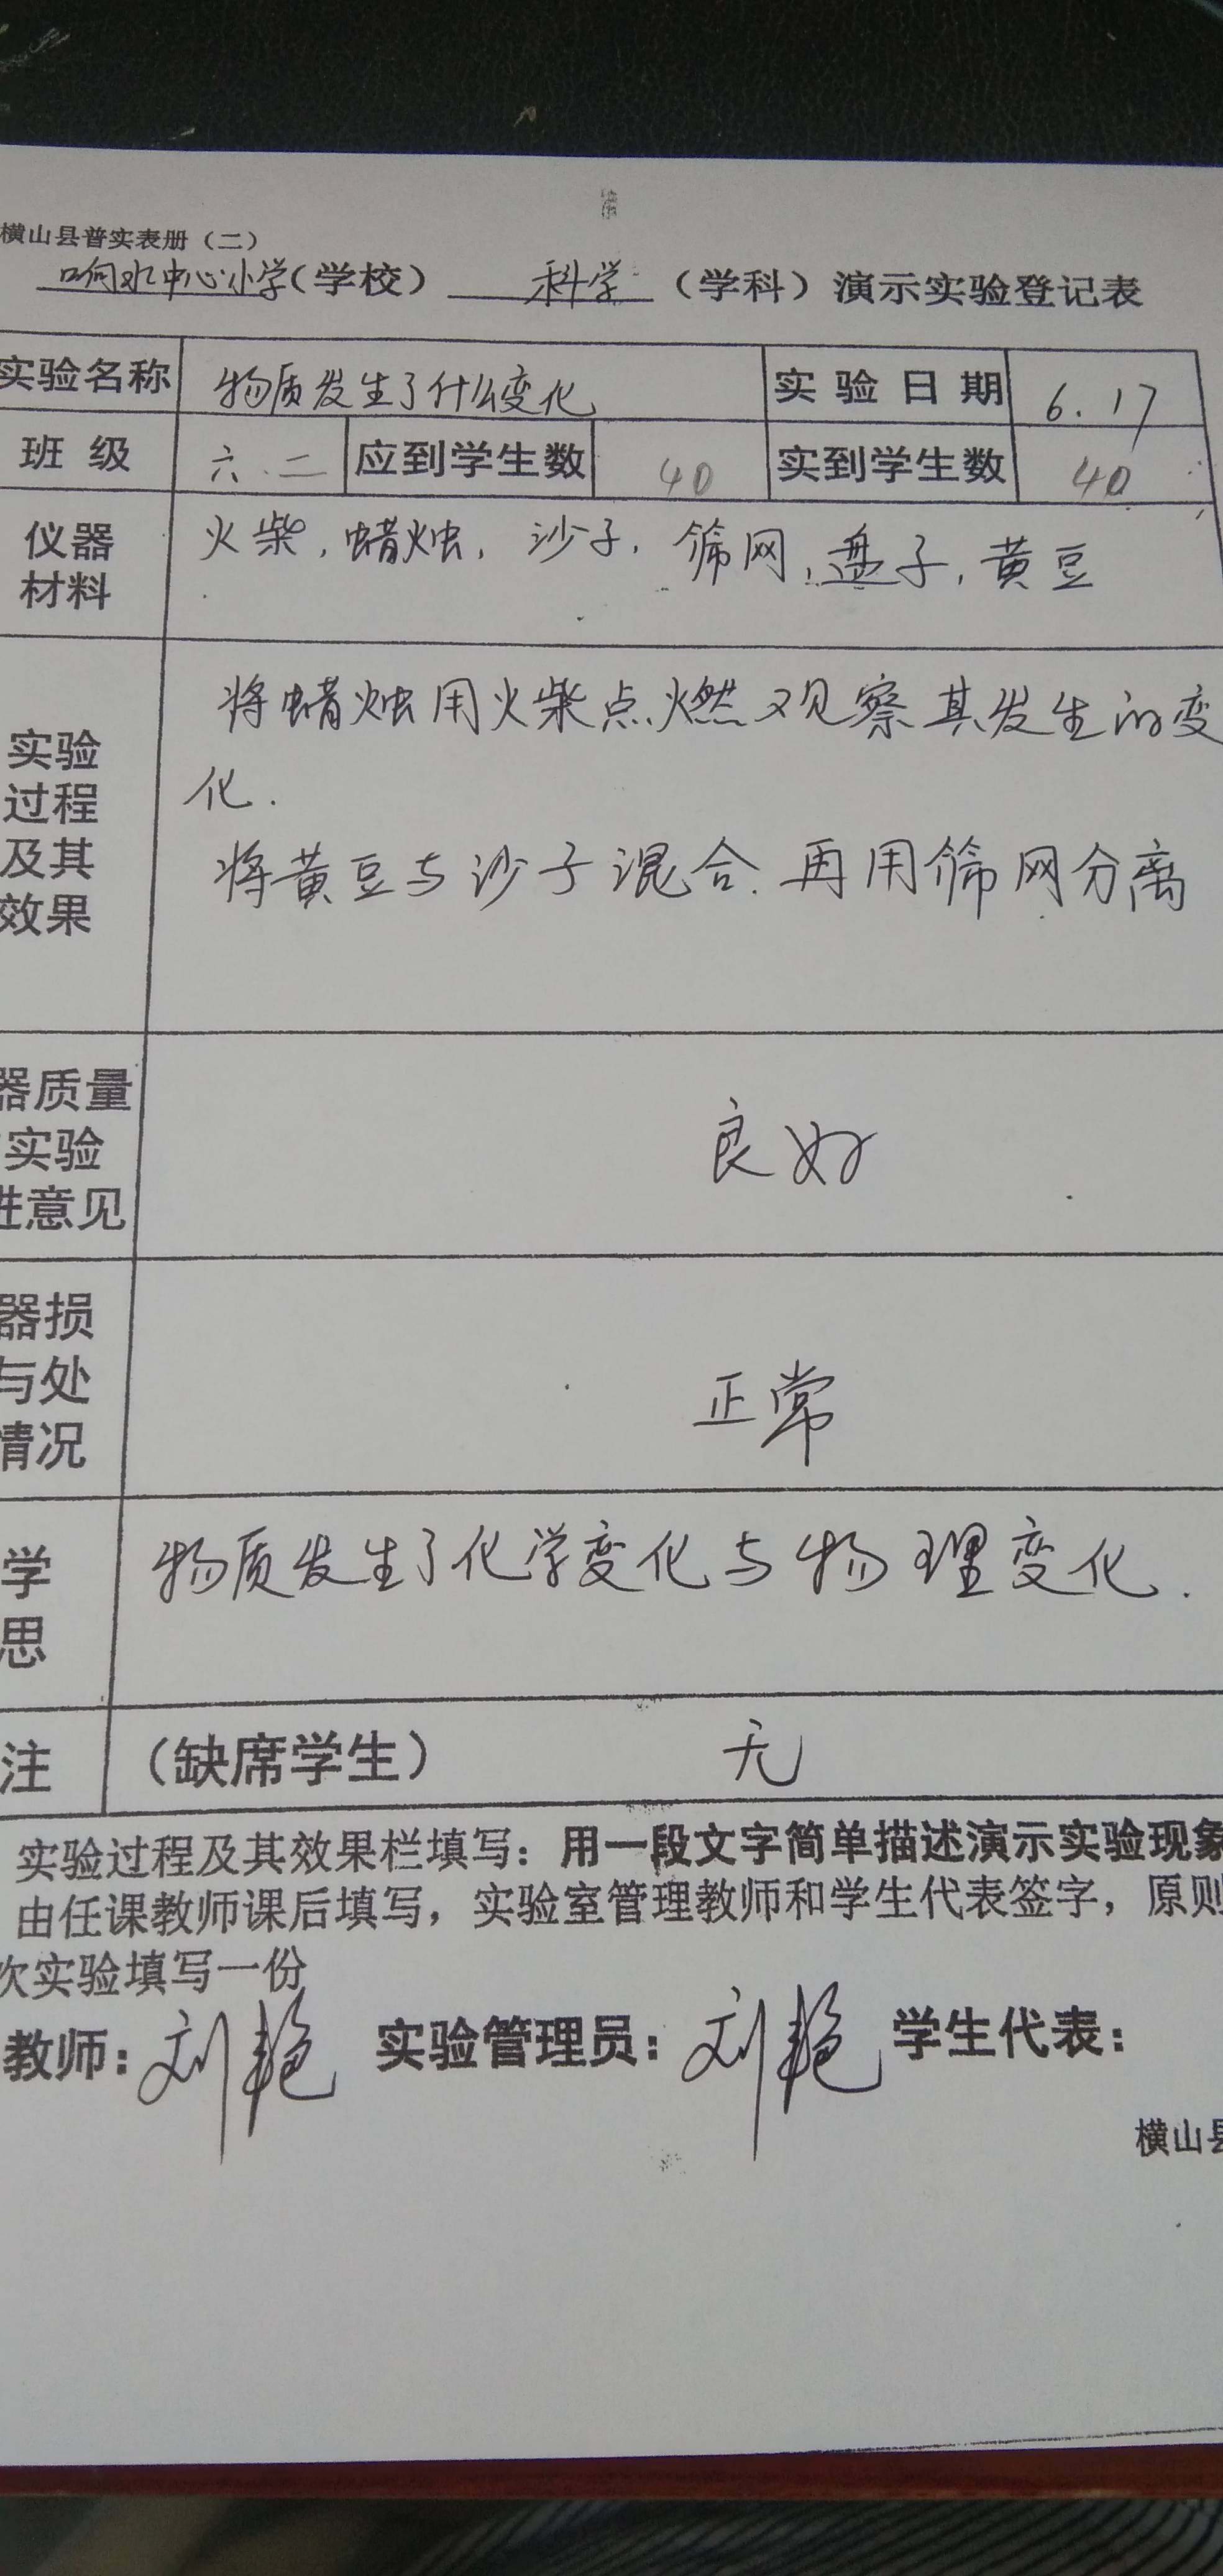 横山县普实表册（二）
响水中心小学（学校） 科学 （学科）演示实验登记表
实验名称 物质发生了什么变化 实验日期 6.17
班级 六.二 应到学生数 40 实到学生数 40
仪器 火柴，蜡烛，沙子，筛网，盘子，黄豆
材料
将蜡烛用火柴点燃观察其发生的变
实验
化.
过程
及其 将黄豆与沙子混合.再用筛网分离
效果
器质量
实验 良好
性意见
器损
与处 正常
情况
学 物质发生了化学变化与物理变化.
思
注 （缺席学生） 无
实验过程及其效果栏填写：用一段文字简单描述演示实验现象
由任课教师课后填写，实验室管理教师和学生代表签字，原则
次实验填写一份
教师：刘艳 实验管理员：刘艳 学生代表：
横山县